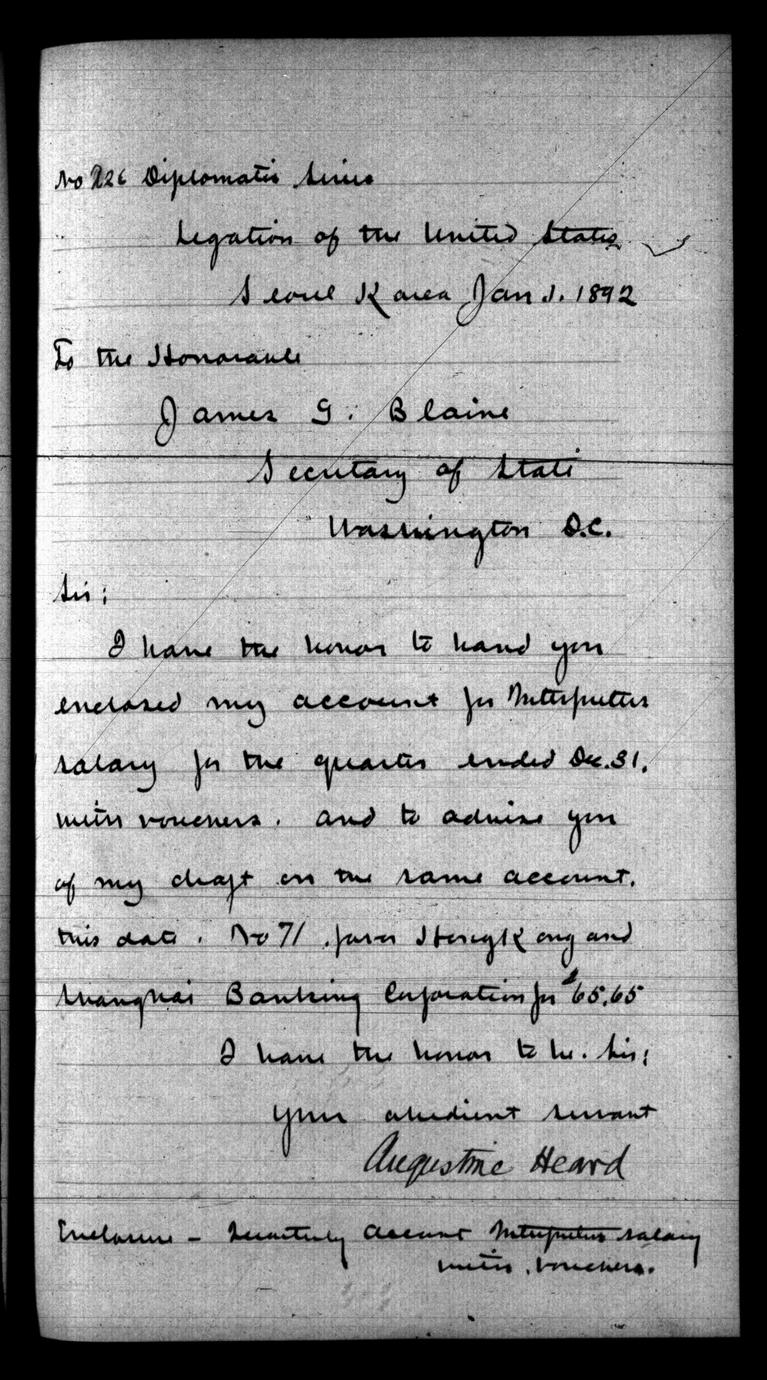 No 226 Diplomatic Series
Legation of the United States
Seoul Korea Jan 1. 1892
To the Honorable
James G. Blaine
Secretary of State
Washington D.C.
Sir:
I have the honor to hand you
enclosed my account for Interpreters
salary for the quarter ended Dec. 31.
with vouchers. and to advise you
of my draft on the same account.
this date. No 71. favor HongKong and
Shanghai Banking Corporation for $65.65
I have the honor to be. Sir:
Your obedient servant
Augustine Heard
Enclosure - Quarterly Account Interpreters salary
with vouchers.